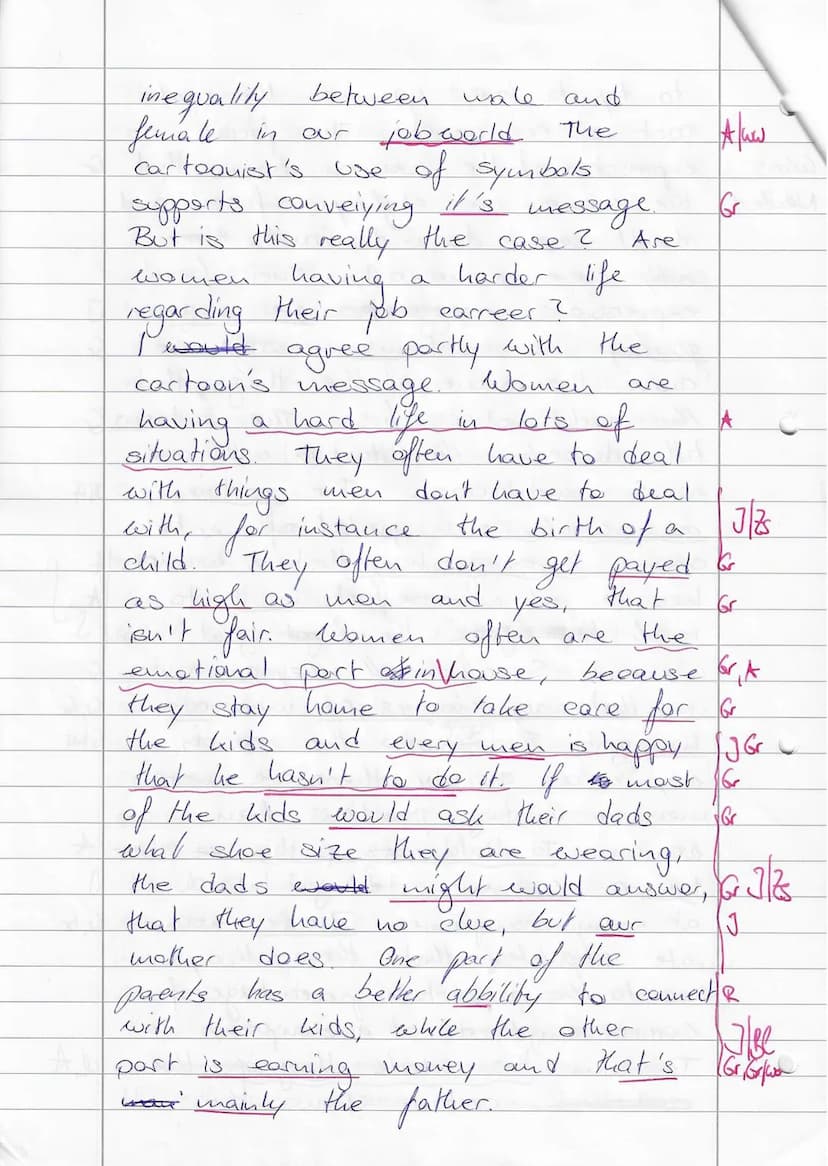 inequality between male and
female in our job world. The A/ww
cartoonist's use of symbols
supports conveiying it's message. Gr
But is this really the case? Are
women having a harder life
regarding their job carreer?
I would agree partly with the
cartoon's message. Women are
having a hard life in lots of A
situations. They often have to deal
with things men don't have to deal
with, for instance the birth of a J/Zs
child. They often don't get payed Gr
as high as men and yes, that Gr
isn't fair. Women often are the
emotional part in house, because Gr, A
they stay home to take care for Gr
the kids and every men is happy J Gr
that he hasn't to do it. If most Gr
of the kids would ask their dads Gr
what shoe size they are wearing,
the dads would might would answer, Gr J/Zs
that they have no clue, but our J
mother does. One part of the
parents has a better abbility to connect R
with their kids, while the other
part is earning money and that's Gr, Gr/ww
mainly the father.